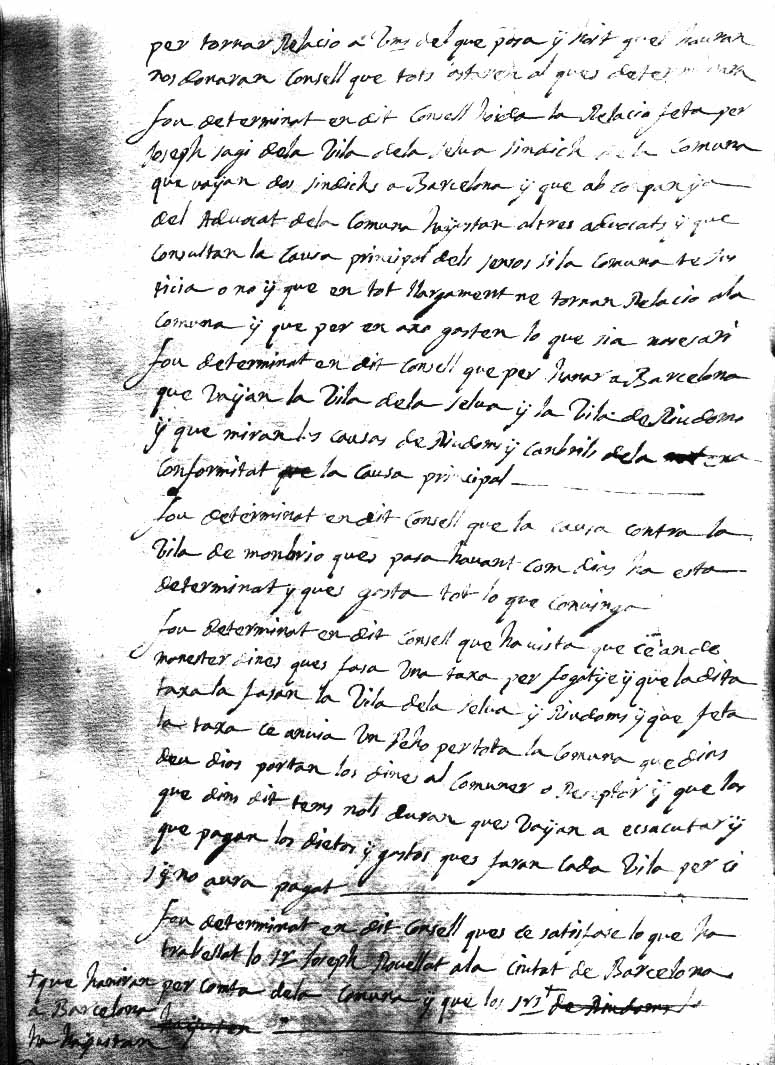 per tornar Relacio a Vms del que pasa ÿ hoit quels hauran
nos donaran Consell que tots estaren al ques determinara
fou determinat en dit Consell hoida la Relacio feta per
Joseph sagi dela Vila dela selva sindich dela Comuna
que vaÿan dos sindichs a Barcelona ÿ que ab conpanÿa
del Advocat dela Comuna haÿustan altres advocats ÿ que
Consultan la Causa principal dels sensos si la Comuna te Jus
ticia o no ÿ que en tot llargament ne tornan Relacio ala
Comuna ÿ que per en axo gasten lo que sia nesesari
fou determinat en dit Consell que per hanar a Barcelona
que Vaÿan la Vila dela selva ÿ la Vila de Riudoms
ÿ que miran los causas de Riudoms ÿ Canbrils dela matexa
Conformitat que la Causa principal
fou determinat en dit Consell que la causa contra la
Vila de monbrio ques pasa havant com dins ha esta
determinat y ques gasta tot lo que Convinga
fou determinat en dit Consell que havista que ce an de
manester dines ques fasa Una taxa per fogatje ÿ que la dita
taxa la fasan la Vila dela selva ÿ Riudoms ÿ que feta
la taxa ce anvia Un Peho per tota la Comuna que dins
deu dios portan los dines al Comuner o Receptor ÿ que los
que dins dit tems nols duran ques Vaÿan a ecsacutar ÿ
que pagan los dietos ÿ gastos ques faran Cada Vila per ci
sÿ no aura pagat
fou determinat en dit Consell ques ce satisfase lo que ha
traballat lo sr Joseph Rovellat ala Ciutat de Barcelona
per Comta dela Comuna ÿ que los srs † de Riudoms lo
haÿustan
† que haniran
a Barcelona
ho haÿustan